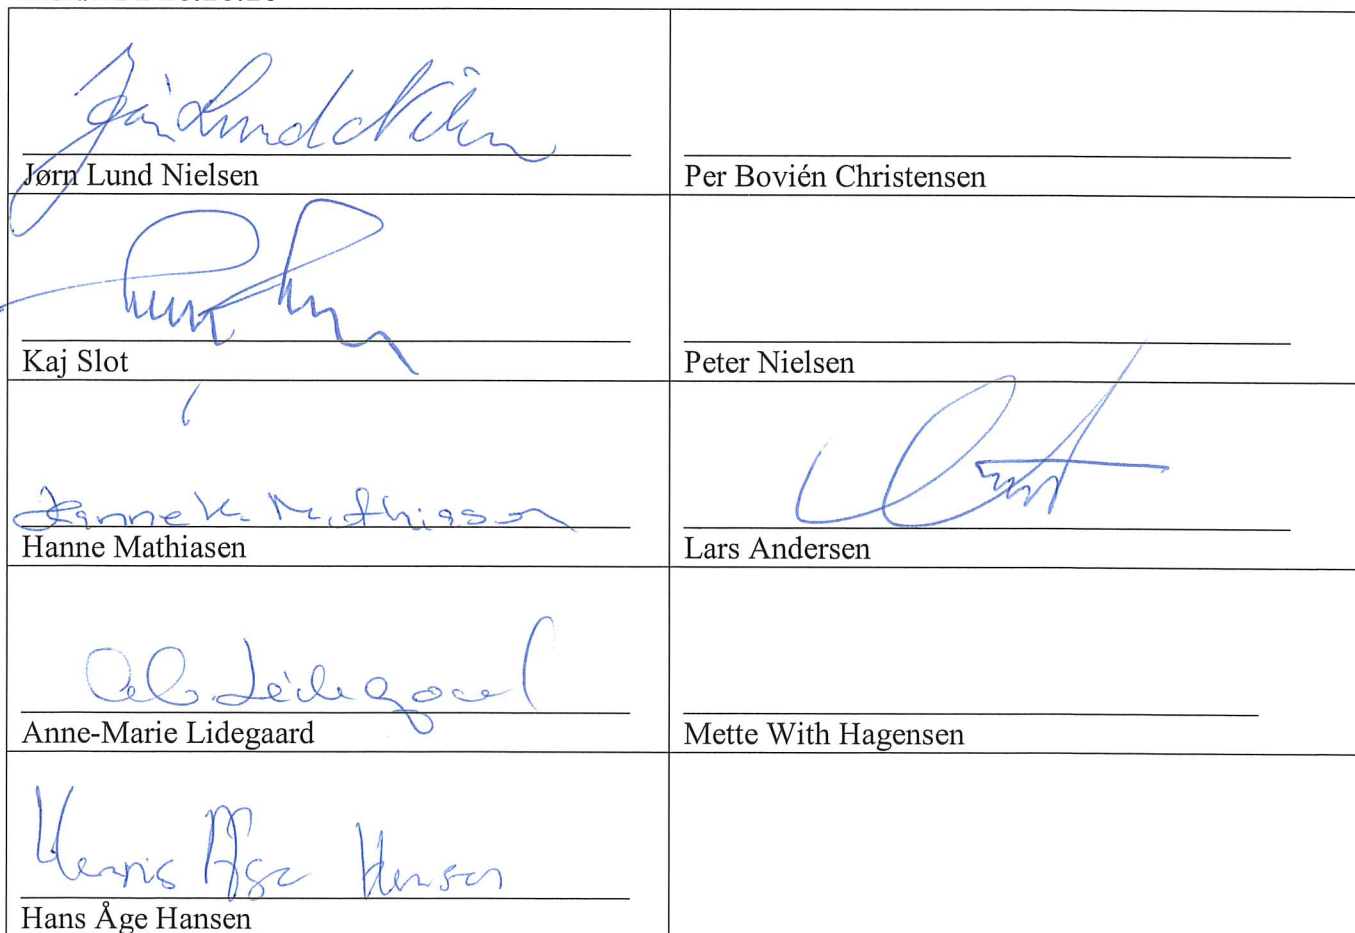 Jørn Lund Nielsen
Per Bovién Christensen
Kaj Slot
Peter Nielsen
Hanne K. Mathiasen
Hanne Mathiasen
Lars Andersen
Lidegaard
Anne-Marie Lidegaard
Mette With Hagensen
Hansen
Hans Åge Hansen